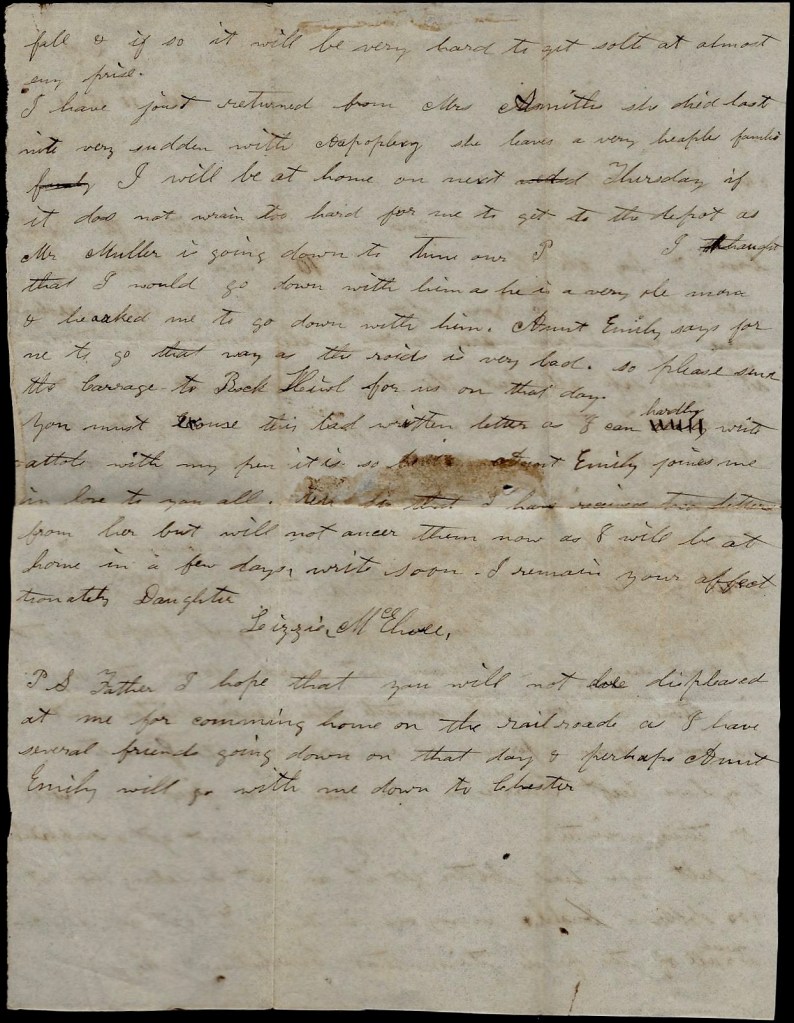 fall & if so it will be very hard to get solt at almost
eny price.
I have just returned from Mrs Asmiths she died last
nite very sudden with she leaves a very heaples famlie
family I will be at home on next Thursday if
it dos not wrain too hard for me to get to the depot as
Mr Muller is going down to I thaught
that I would go down with him as he is a very ole man
& he asked me to go down with him. Aunt Emily says for
me to go that way as the roids is very bad. so please send
the Carrage to Rock Hiwl for us on that day.
You must excuse this bad written letter as I can hardly write
attole with my pen it is so Aunt Emily joines me
in love to you all. that I have received two letters
from her but will not ancer them now as I will be at
home in a few days, write soon. I remain your affect
tionately Daughter
Lizzie McElwee,
P S Father I hope that you will not be displeased
at me for comming home on the railroade as I have
several friends going down on that day & perhaps Aunt
Emily will go with me down to Chester